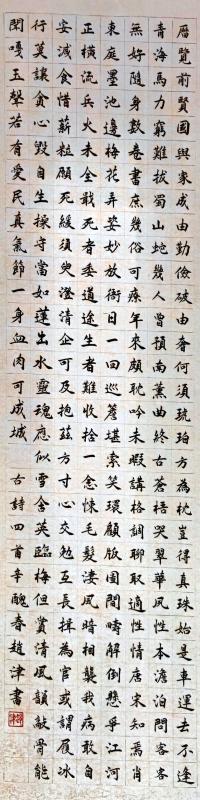 歷覽前賢國與家成由勤儉破由奢何須琥珀方為枕豈得真珠始是車運去不逢
青海馬力窮難拔蜀山蛇幾人曾預南薰曲終古蒼梧哭翠華夙性本澹泊問客客
無好隨身數卷書庶幾俗可療年來頗耽吟未暇講格調聊取適性情唐宋知焉肖
東庭墨池邊梅花弄姿妙放衙日一回巡簷堪索笑環顧版圖間疇解倒懸乎江河
正橫流兵火未全戢死者委道途生者難收拾一念悚毛髮淒風暗相襲我病敢自
安減食惜薪粒願死緩須臾澄清企可及抱茲方寸心交勉互長揖為官或謂履冰
行莫讓貪心毀自生操守當如蓮出水靈魂應似雪含英臨梅但賞清風韻敲骨能
聞嘎玉聲若有愛民真氣節一身血肉可成城 古詩四首辛醜春趙津書